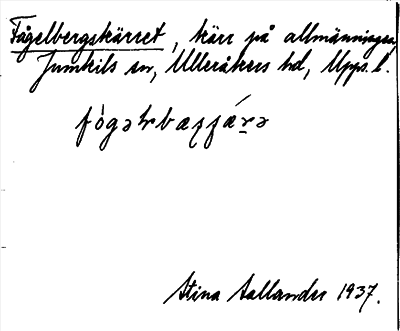 Fågelbergskärret, kärr på allmänningen,
Jumkils sn, Ulleråkers hd, Upps. l.
fògəlrbæʒʃáɽə
Stina Sallander 1937.